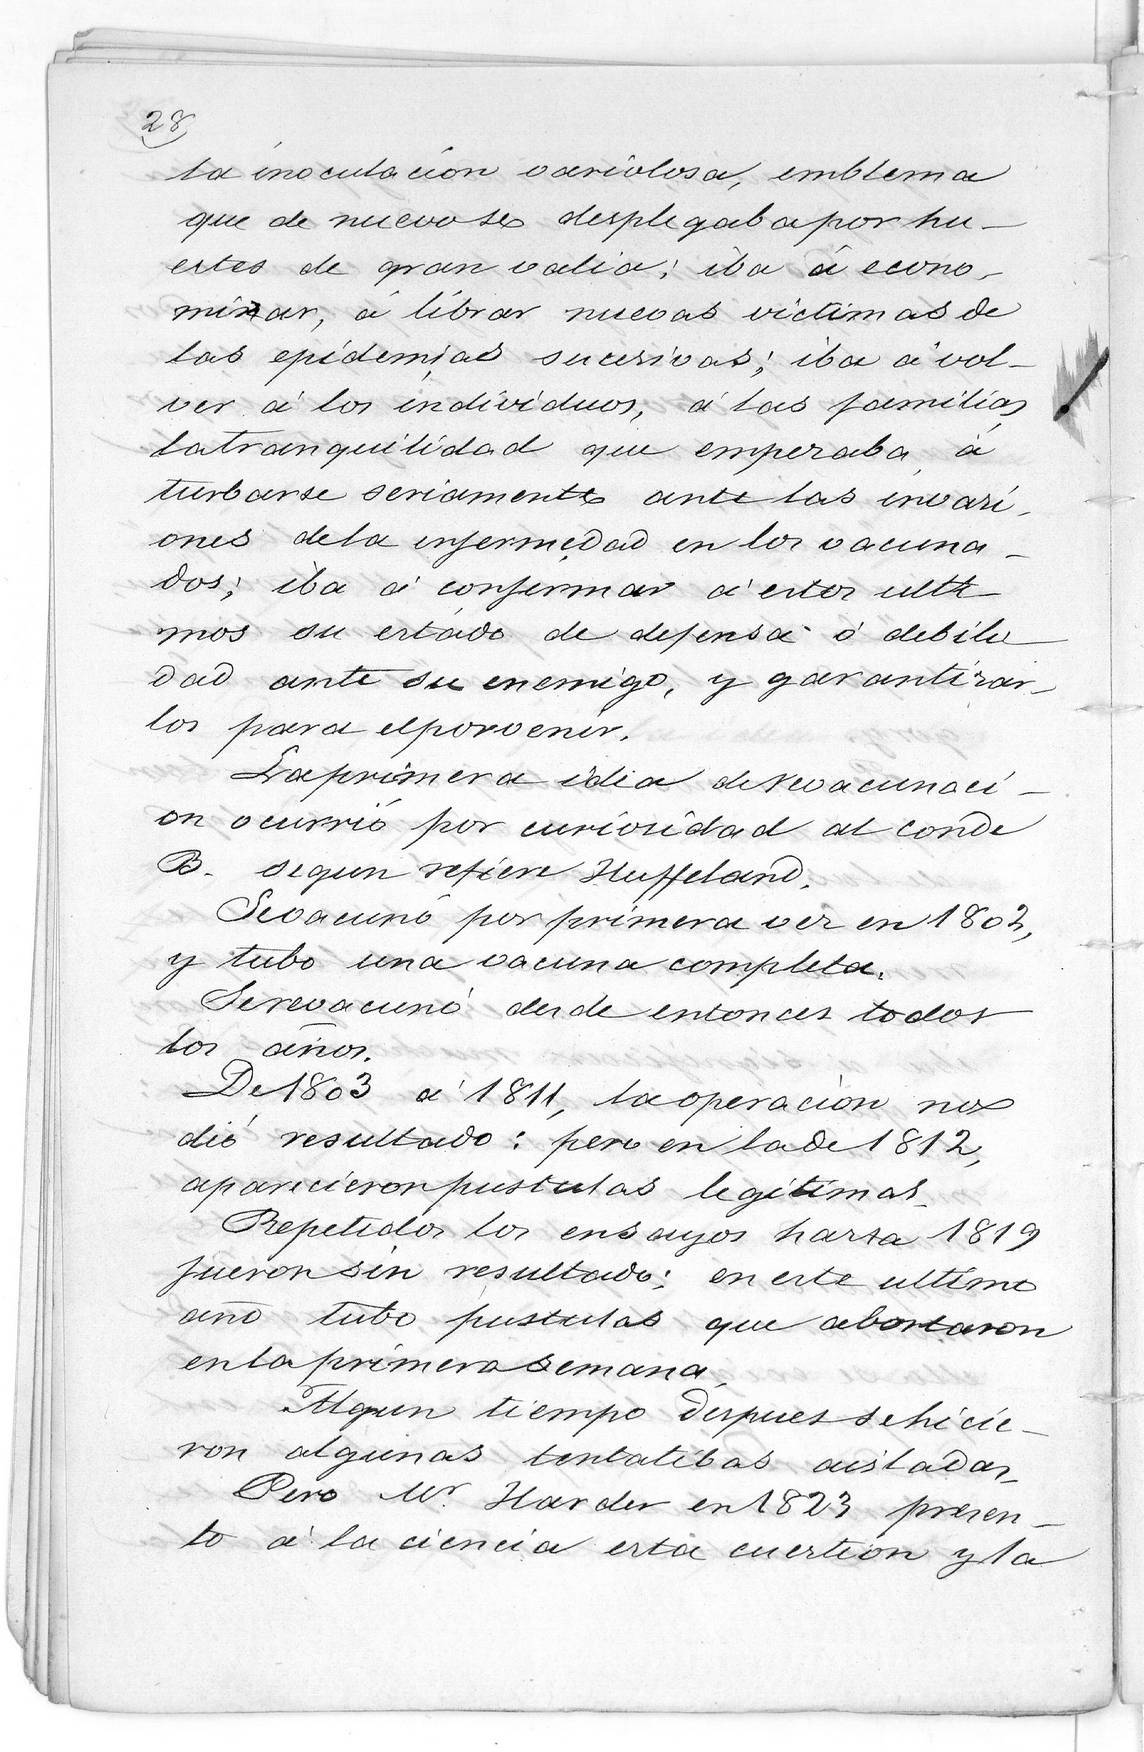 28
la inoculación variolosa, emblema
que de nuevo se desplegaba por hu-
estes de gran valia; iba á econo-
mizar, á librar nuevas victimas de
las epidemias sucesivas; iba á vol-
ver á los individuos, á las familias
la tranquilidad que empezaba á
turbarse seriamente ante las invasi-
ones de la enfermedad en los vacuna-
dos; iba á confirmar á estos ulti-
mos su estádo de defensa ó debili-
dad ante su enemigo, y garantizar-
los para el porvenir.
La primera idia de revacunaci-
on ocurrió por curiosidad al conde
B. segun refiere Huffeland.
Se vacunó por primera vez en 1802,
y tubo una vacuna completa.
Se revacunó desde entonces todos
los años.
De 1803 á 1811, la operación no
dió resultado: pero en la de 1812,
aparicieron pustulas legitimas.
Repetidos los ensayos hasta 1819
fueron sin resultado; en este ultimo
año tubo pustulas que abortaron
en la primera semana.
Algun tiempo despues se hicie-
ron algunas tentatibas aisladas,
Pero Mr. Harder en 1823 presen-
to á la ciencia esta cuestion y la